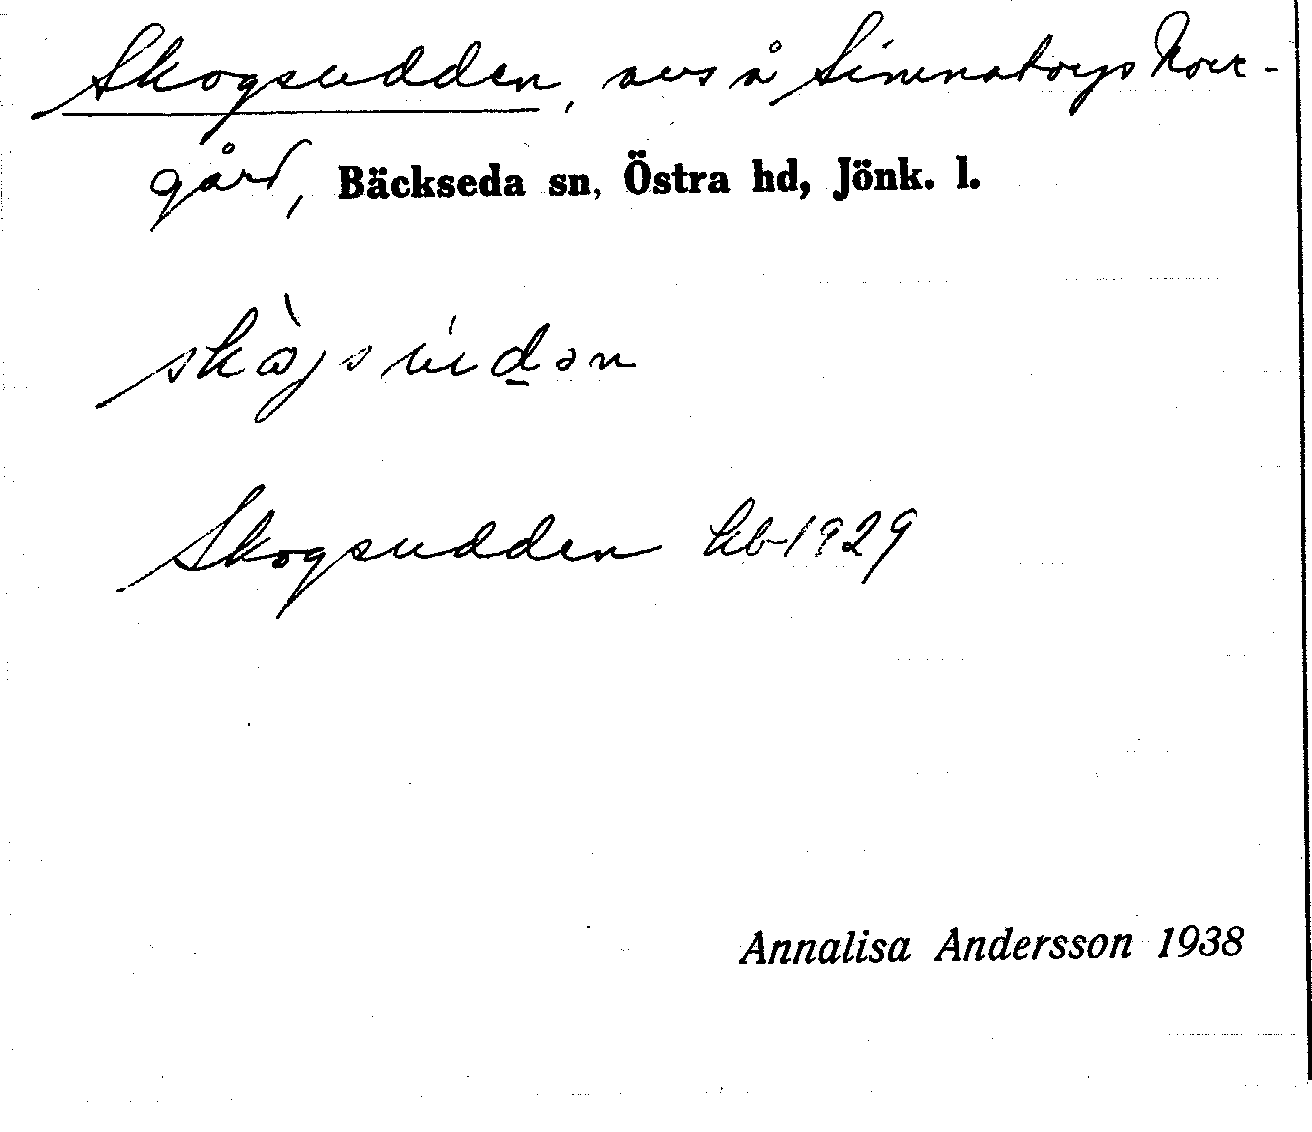 Skogsudden, avs å Simnatorps Norr-
gård, Bäckseda sn, Östra hd, Jönk. l.
Skogsudden kb 1929
Annalisa Andersson 1938